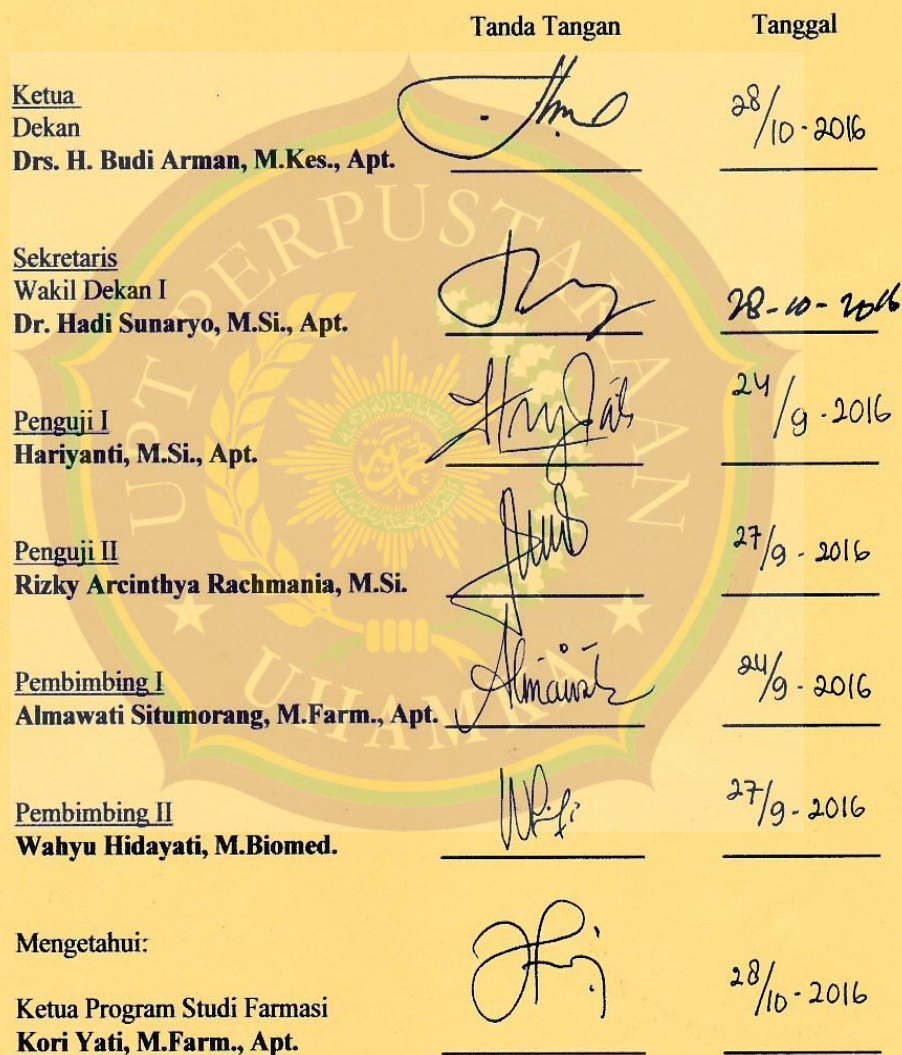 Tanda Tangan Tanggal
Ketua
Dekan
Drs. H. Budi Arman, M.Kes., Apt.
28/10-2016
Sekretaris
Wakil Dekan I
Dr. Hadi Sunaryo, M.Si., Apt.
28-10-2016
Penguji I
Hariyanti, M.Si., Apt.
24/9-2016
Penguji II
Rizky Arcinthya Rachmania, M.Si.
27/9-2016
Pembimbing I
Almawati Situmorang, M.Farm., Apt.
24/9-2016
Pembimbing II
Wahyu Hidayati, M.Biomed.
27/9-2016
Mengetahui:
Ketua Program Studi Farmasi
Kori Yati, M.Farm., Apt.
28/10-2016
UPT PERPUSTAKAAN
UHAMKA